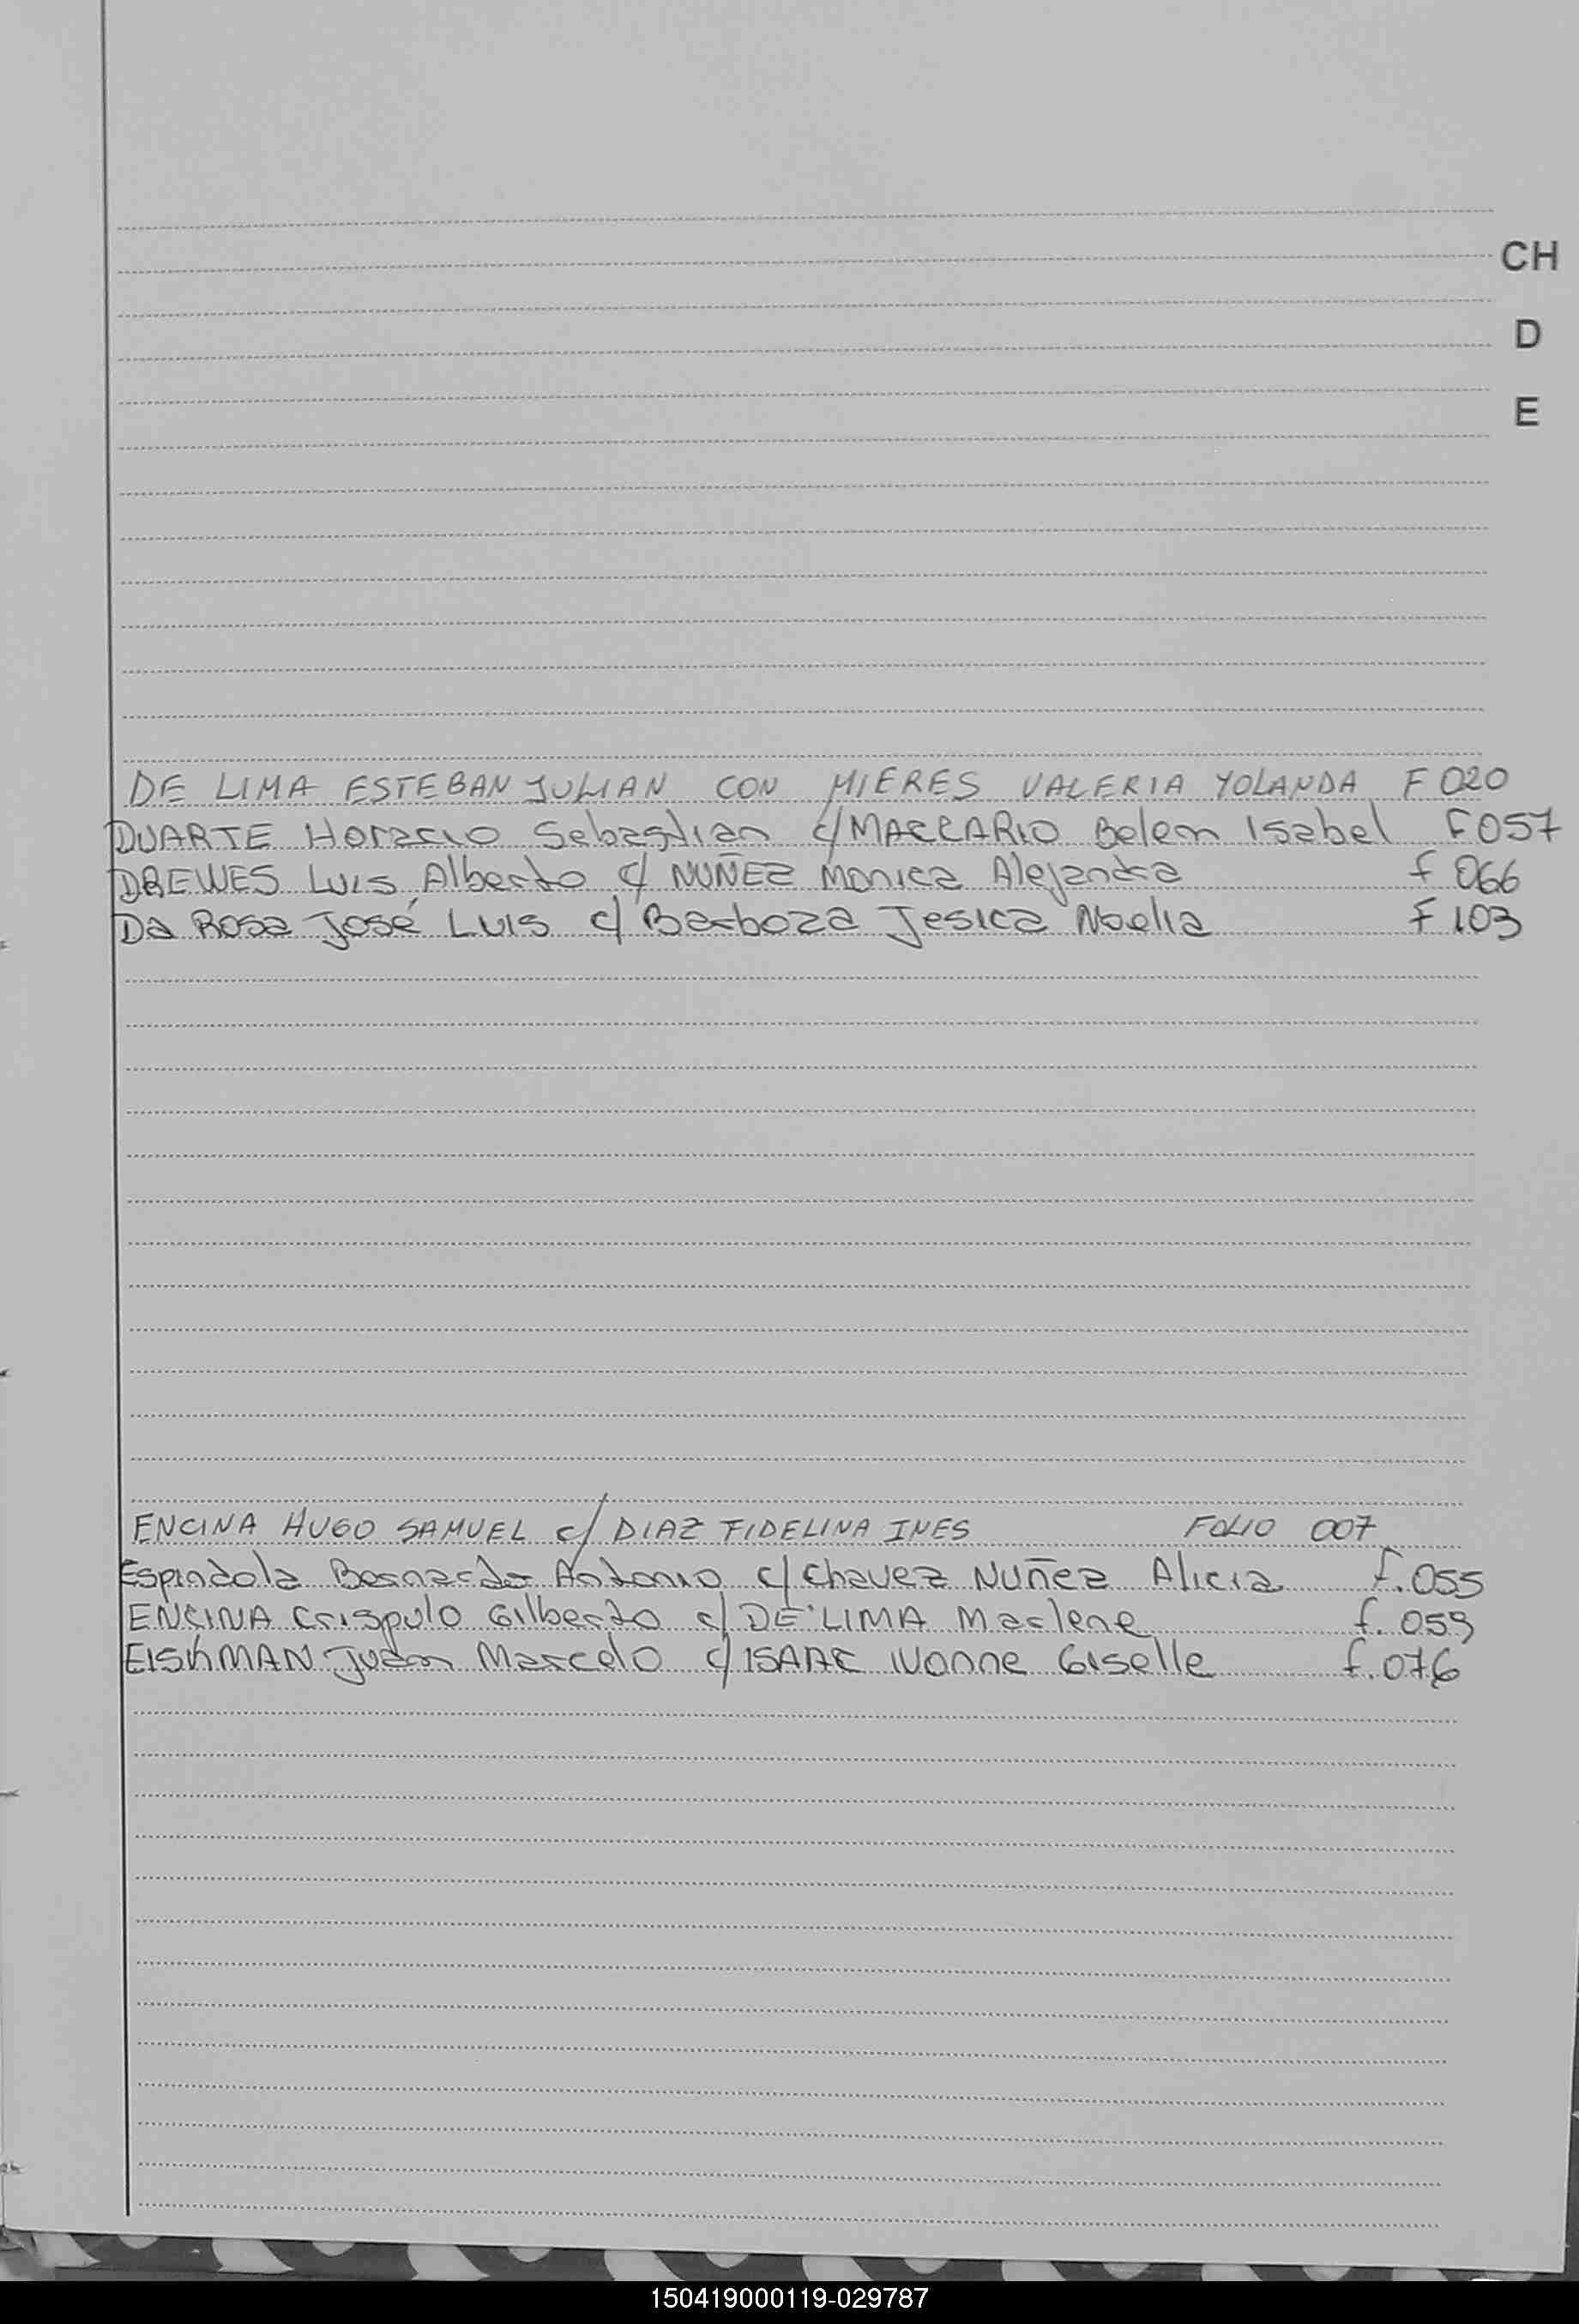 CH
D
E
DE LIMA ESTEBAN JULIAN CON MIERES VALERIA YOLANDA F 020
DUARTE Horacio Sebastian c/ MACCARIO Belem Isabel F 057
DREWES Luis Alberto c/ NUÑEZ Monica Alejandra f 066
Da Rosa José Luis c/ Barboza Jesica Noelia F 103
ENCINA HUGO SAMUEL c/ DIAZ FIDELINA INES FOLIO 007
Espindola Bernardo Antonio c/ Chavez Nuñez Alicia F. 055
ENCINA Crispulo Gilberto c/ DE LIMA Marlene f. 059
EISHMAN Juan Marcelo c/ ISAAC Ivonne Giselle f. 076
150419000119-029787